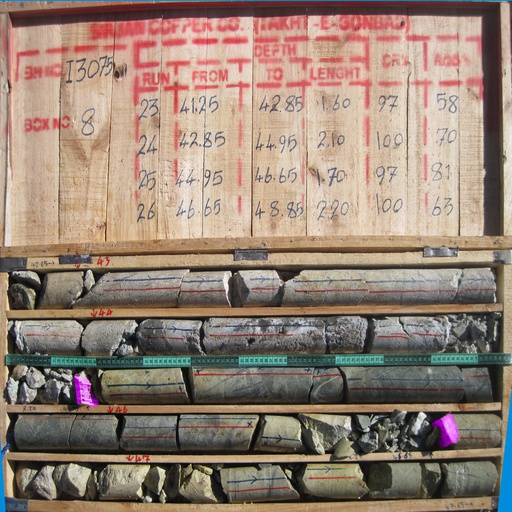 SIRJAN COPPER CO. (TAKHT-E-GONBAD)
BH NO. I3075
DEPTH
RUN FROM TO LENGHT CR% RQD%
23 41.25 42.85 1.60 97 58
BOX NO. 8
24 42.85 44.95 2.10 100 70
25 44.95 46.65 1.70 97 81
26 46.65 48.85 2.20 100 63
43
44
46
47